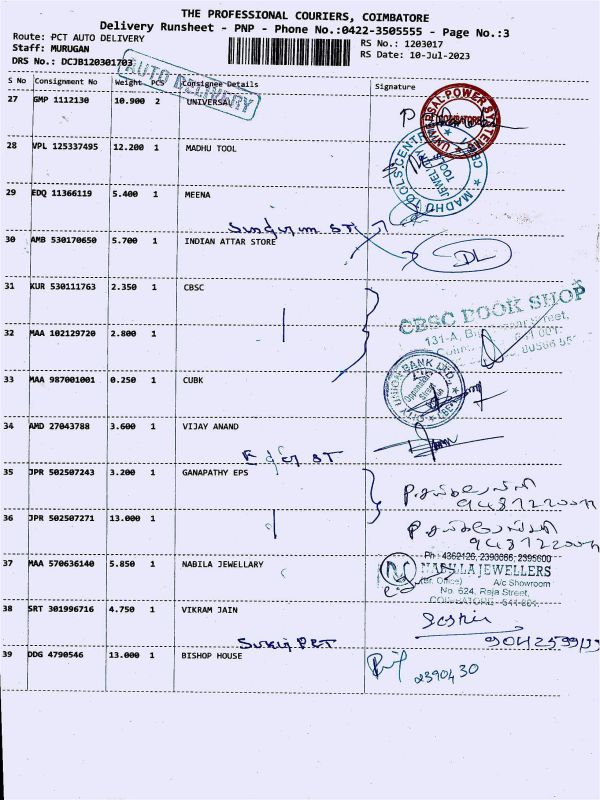 THE PROFESSIONAL COURIERS, COIMBATORE
Delivery Runsheet - PNP - Phone No.:0422-3505555 - Page No.:3
Route: PCT AUTO DELIVERY
RS No.: 1203017
Staff: MURUGAN
RS Date: 10-Jul-2023
DRS No.: DCJB120301703
AUTO DELIVERY
S No Consignment No Weight PCS Consignee Details Signature
27 GMP 1112130 10.900 2 UNIVERSAL
UNIVERSAL POWER SYSTEMS
COIMBATORE
28 VPL 125337495 12.200 1 MADHU TOOL
MADHU TOOLS CENTRE
JEWELLERY TOOLS
29 EDQ 11366119 5.400 1 MEENA
30 AMB 530170650 5.700 1 INDIAN ATTAR STORE
DL
31 KUR 530111763 2.350 1 CBSC
CBSC BOOK SHOP
131-A,
32 MAA 102129720 2.800 1
33 MAA 987001001 0.250 1 CUBK
CITY UNION BANK LTD.
34 AMD 27043788 3.600 1 VIJAY ANAND
35 JPR 502507243 3.200 1 GANAPATHY EPS
36 JPR 502507271 13.000 1
37 MAA 570636140 5.850 1 NABILA JEWELLARY
Ph : 4362126, 2393666, 2395600
NABILLA JEWELLERS
(Br. Office) A/c Showroom
No. 624, Raja Street,
COIMBATORE - 641 001.
38 SRT 301996716 4.750 1 VIKRAM JAIN
39 DDG 4790546 13.000 1 BISHOP HOUSE
2390430